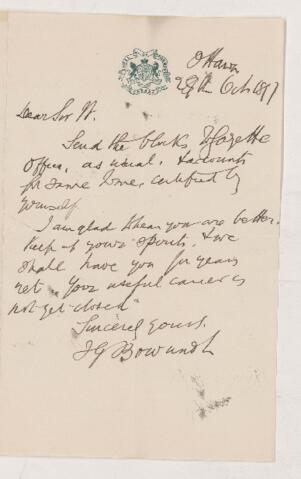 Ottawa
28th Oct 1897
Dear Sir W.
Send the blocks to Gazette
Office, as usual, & accounts
for same to me, certified by
yourself.
I am glad to hear you are better.
Keep up your spirits, & we
shall have you for years
yet. Your useful career is
not yet closed
Sincerely yours.
J G Bourinot